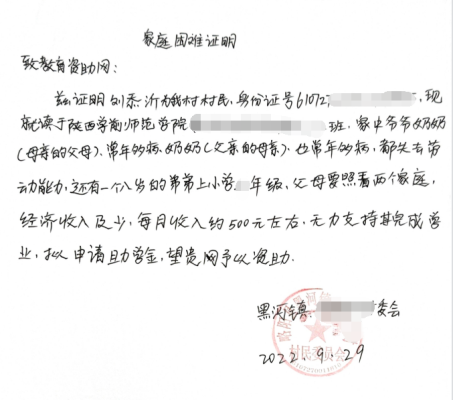 家庭困难证明
致教育资助网:
兹证明刘 沂为我村村民,身份证号61072 ,现
就读于陕西学前师范学院 班,家中爷爷奶奶
(母亲的父母),常年多病,奶奶(父亲的母亲),也常年多病,都失去劳
动能力,还有一个八岁的弟弟上小学 年级,父母要照看两个家庭,
经济收入及少,每月收入约500元左右,无力支持其完成学
业,拟申请助学金,望贵网予以资助.
黑河镇 委会
村民委员会
2022.9.29